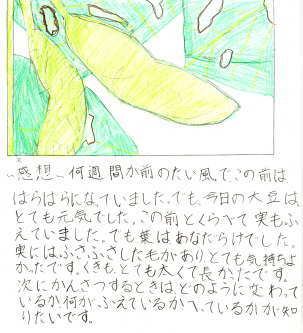 感想 何週間か前のたい風でこの前は
はらはらになっていました。でも今日の大豆は、
とても元気でした。この前とくらべて実もふ
えていました。でも葉はあなだらけでした。
実には、ふさふさした毛がありとても気持ちよ
かったです。くきも、とても太くて長かったです。
次にかんさつするときは、どのように変わって
いるか何が、ふえているかへっているかが知
りたいです。